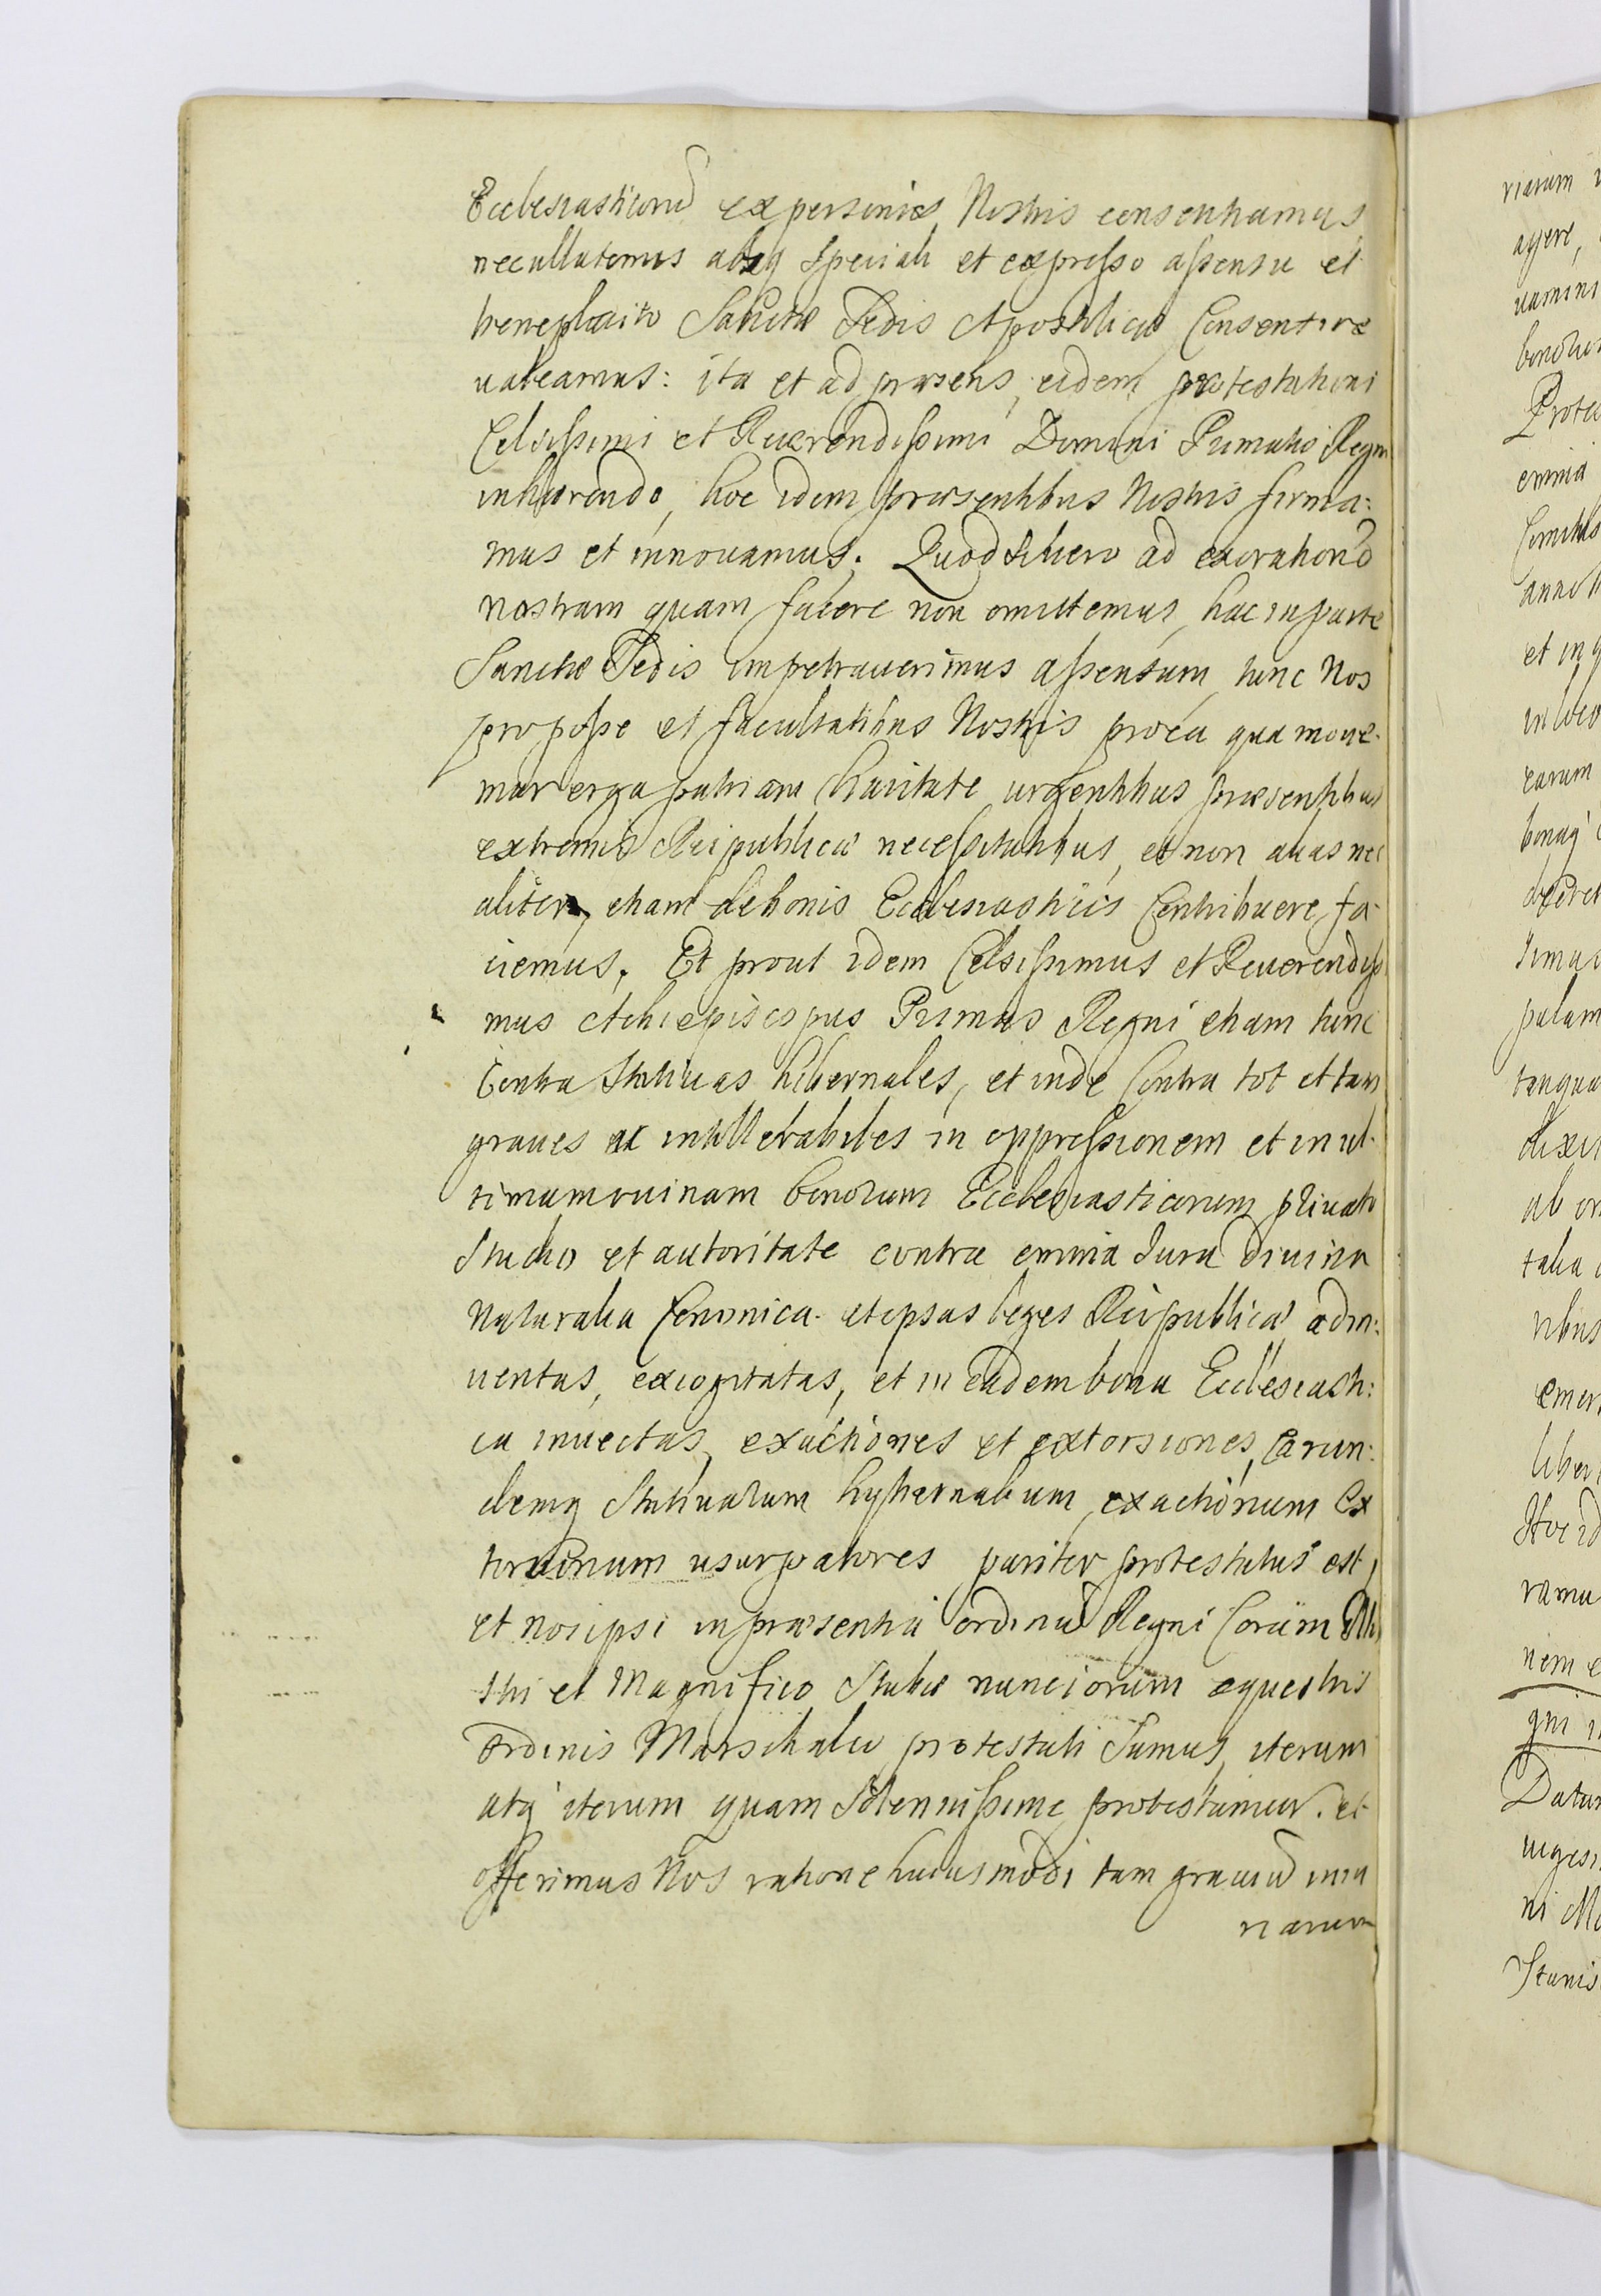 Ecclesiasticorū ex personis Nostris consentiamus
nec ullatenus absq speciali et expresso assensu et
beneplacito Sanctæ Sedis Apostolicæ Consentire
valeamus: ita et ad præsens, eidem protestationi
Celsissimi et Reuerendissimi Domini Primatis Regni
inhærendo, hoc idem præsentibus Nostris firma:
mus et innouamus. Quod si vero ad exorationē
nostram quam facere non omittemus, hac in parte
Sanctæ Sedis impetrauerimus assensum, tunc Nos
pro posse et facultatibus Nostris pro ea qua moue-
mur erga patriam charitate urgentibus præsentibus
extremis Reipublicæ necessitatibus, et non alias nec
aliter, etiam de bonis Ecclesiasticis Contribuere fa-
ciemus. Et prout idem Celsissimus et Reuerendiss:
mus Archiepiscopus Primas Regni etiam tunc
Contra Statiuas hibernales, et inde Contra tot et tam
graues ac intollerabiles in oppressionem et in ul-
timam ruinam bonorum Ecclesiasticorum priuato
Studio et autoritate contra omnia Jura diuina
Naturalia Canonica et ipsas leges Reipublicæ adin:
uentas, excogitatas, et in eadem bona Ecclesiasti:
ca inuectas, exactiones et extorsiones, Earun:
demq Statiuarum hybernalium, exactionum Ex
torsionum usurpatores pariter protestatus est,
et nos ipsi in præsentia ordinū Regni Coram Illu
stri et Magnifico Stabæ nunciorum equestris
Ordinis Marschalco protestati Sumus, iterum
atq iterum quam Solennissime protestamur. et
offerimus Nos ratione huiusmodi tam grauiū iniu
riarum
riarum
agere,
uamini
bonorum
Protes
omnia
Comitiis
anno
et in q
in loco
earum
bonaq
decret
simus
palam
tanqua
dixi
ab om
talia
ribus
emer
liber
Hoc id
ramu
nem e
gni i
Datum
uigesi
ni Ma
Stanis